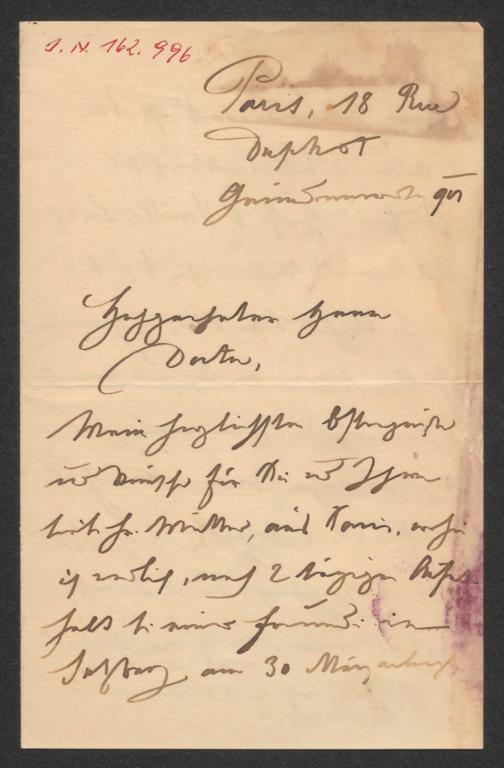 I. N. 162.996
Paris, 18 Rue
Duphot
Gründonnerstag 91
Hochgeehrter Herr
Doctor,
Meine herzlichsten Ostergrüße
u Wünsche für Sie u Ihre
Mutter, aus Paris, wohin
ich endlich, nach 2 tägigem Aufent
halt bei einer Freundin in
Salzburg am 30 März